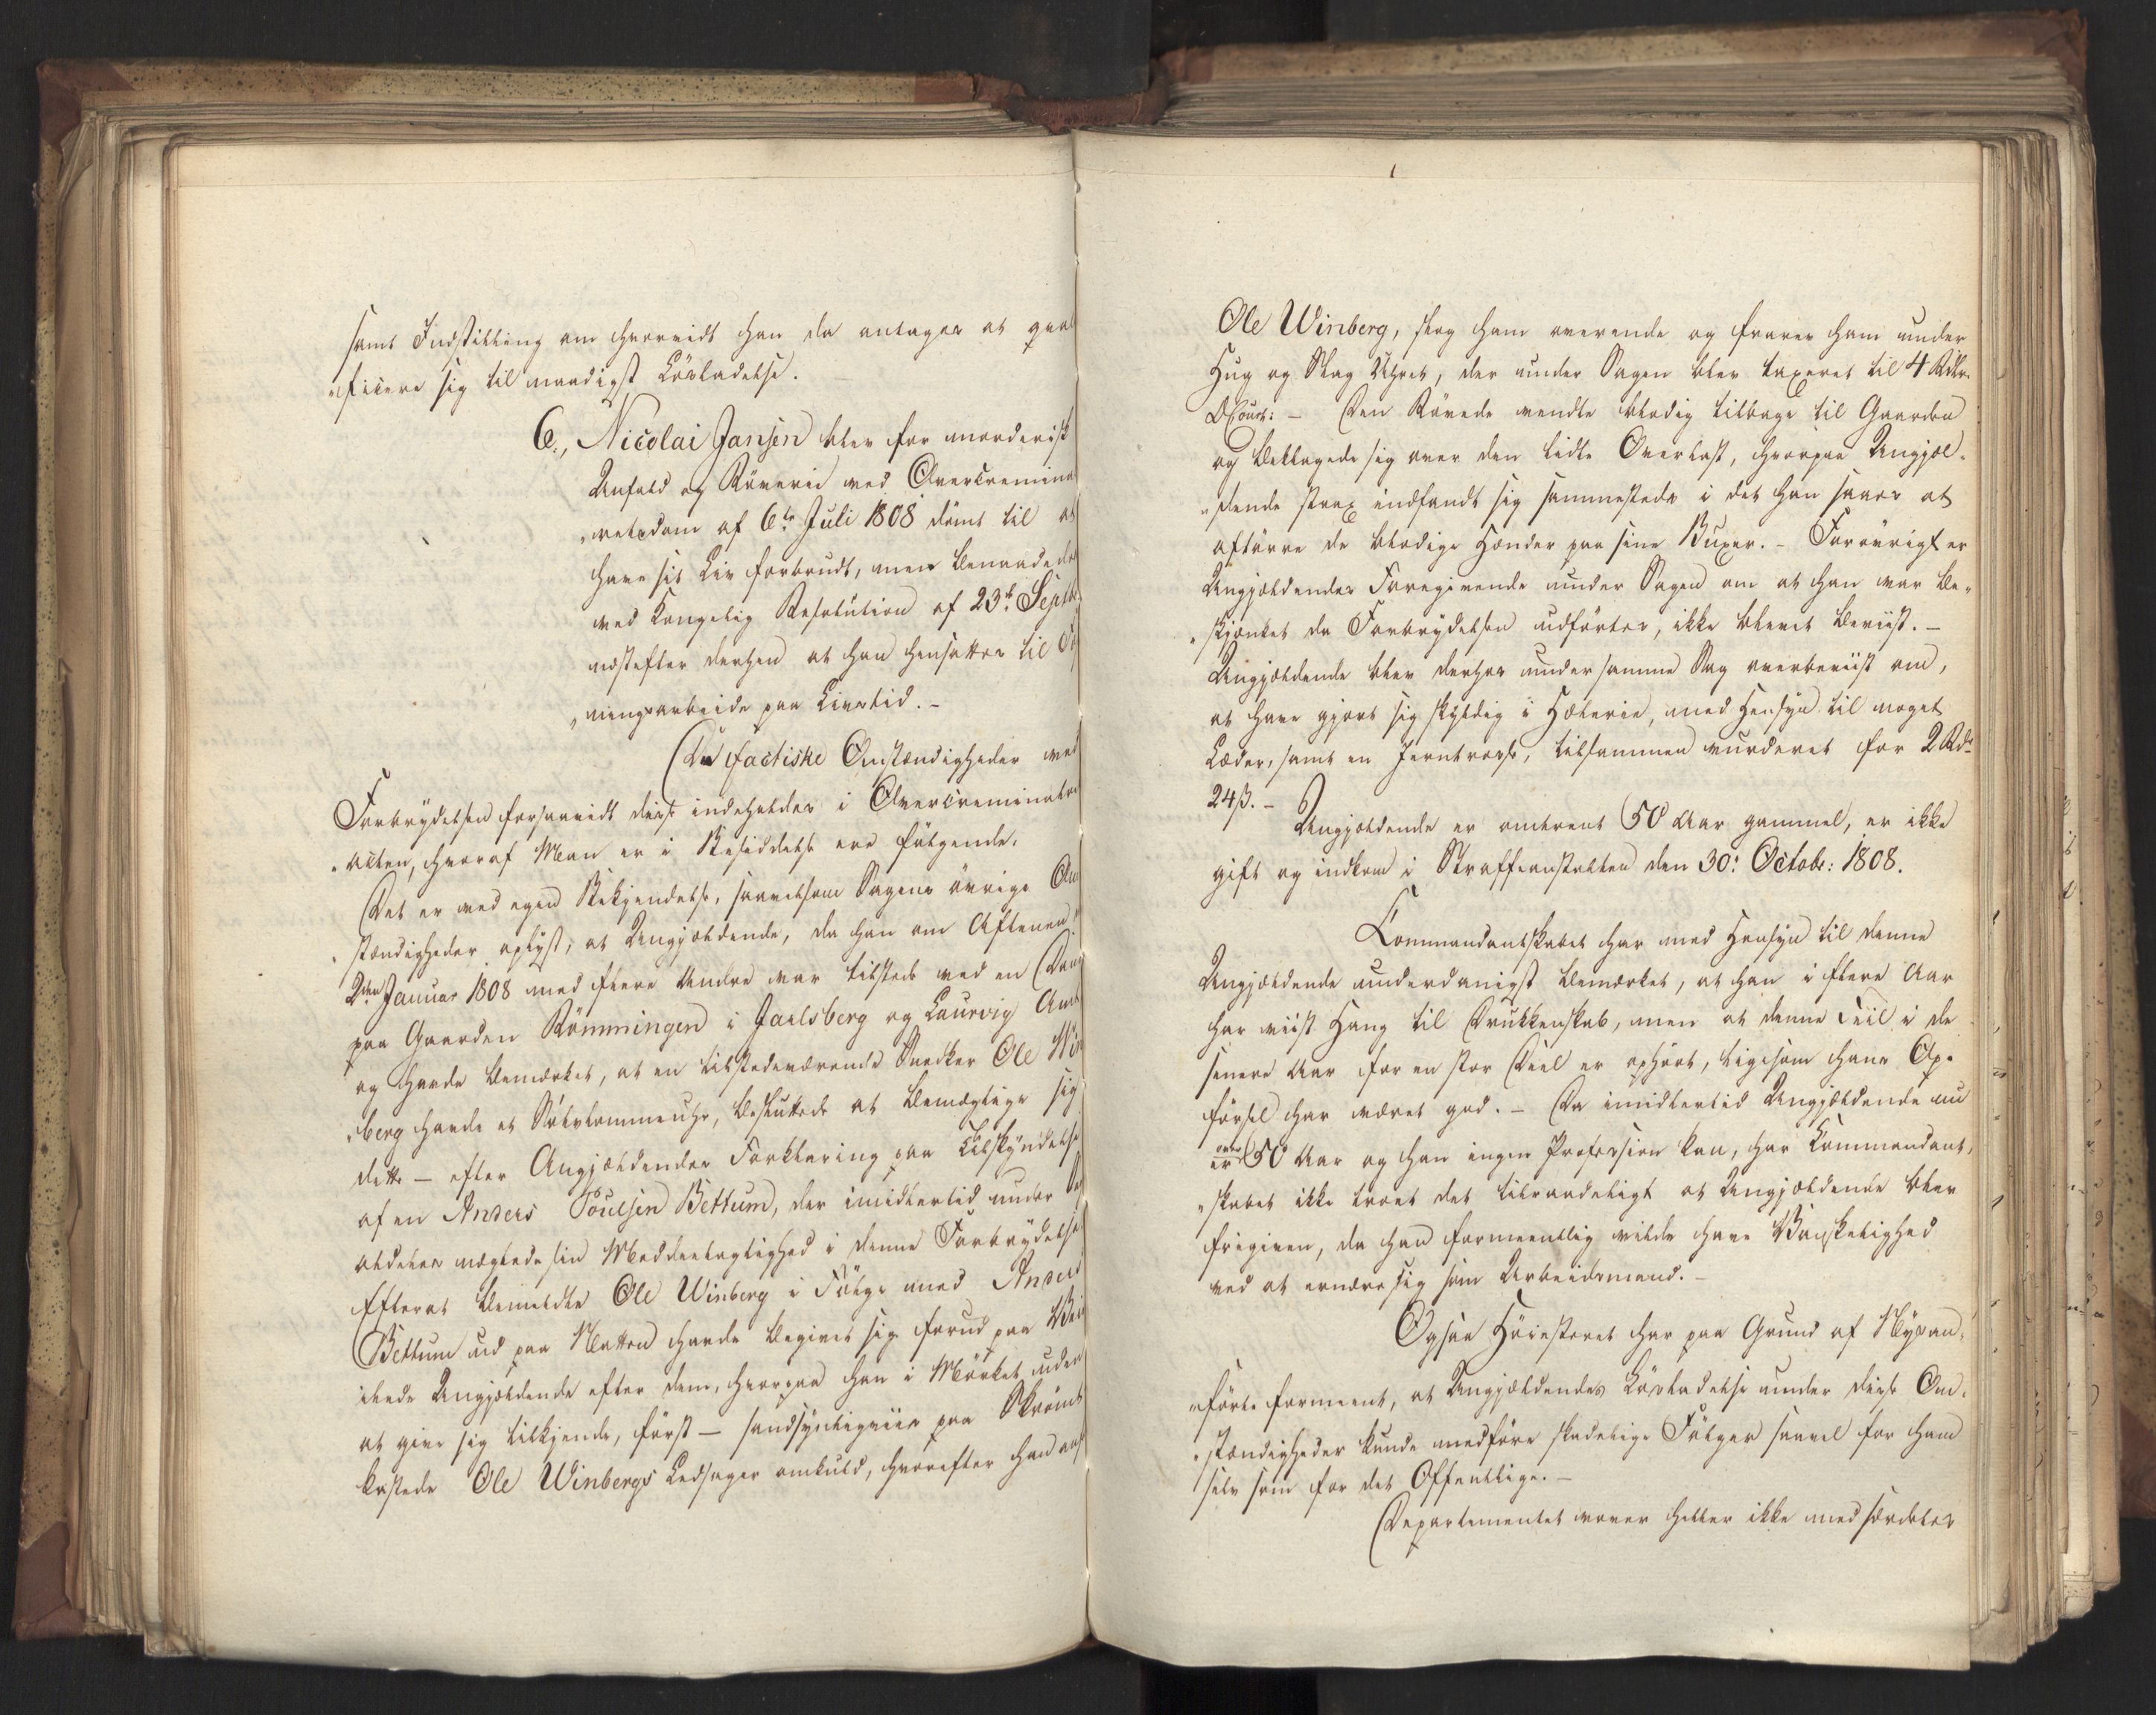 samt Indstilling om hvorvidt han da antages at qvali
„ficere sig til naadigst Løsladelse.
6., Nicolai Jansen blev for morderisk
Anfald og Røverie ved Overcriminal
„retsdom af 6te Juli 1808 dømt til at
have sit Liv forbrudt, men benaadedes
ved Kongelig Resolution af 23de Septbr
næstefter derhen at han hensattes til Fæst
„ningsarbeide paa Livstid. –
De factiske Omstændigheder ved
Forbrydelsen forsaavidt disse indeholdes i Overcriminalrets
„acten, hvoraf Man er i Besiddelse ere følgende.
Det er ved egen Bekjendelse, saavelsom Sagens øvrige Om
„stændigheder oplyst, at Angjældende, da han om Aftenen
2den Januar 1808 med flere Andre var tilstede ved en Dands
paa Gaarden Rømmingen i Jarlsberg og Laurvig Amt
og havde bemærket, at en tilstedeværende Snedker Ole Win
„berg havde et Sølvlommeuhr, besluttede at bemægtige sig
dette – efter Angjældendes Forklaring paa Tilskyndelse
af en Anders Poulsen Bettum, der imidlertid under Sag
aldeles nægtede sin Meddeelagtighed i denne Forbrydelse
Efterat bemeldte Ole Winberg i Følge med Anders
Bettum ud paa Natten havde begivet sig forud paa Vei
ilede Angjældende efter dem, hvorpaa han i Mørket uden
at give sig tilkjende, først – sandsynligviis paa Skrømt
kastede Ole Winbergs Ledsager omkuld, hvorefter han anf
Ole Winberg, slog ham overende og frarev ham under
Hug og Slag Uhret, der under Sagen blev taxeret til 4 Rdlr.
DCour: – Den Røvede vendte blodig tilbage til Gaarden
og beklagede sig over den lidte Overlast, hvorpaa Angjæl„
„dende strax indfandt sig sammesteds i det han saaes at
aftørre de blodige Hænder paa sine Buxer. – Forøvrigt er
Angjældendes Foregivende under Sagen om at han var be„
„skjænket da Forbrydelsen udførtes, ikke blevet beviist. –
Angjældende blev derhos under samme Sag overbeviist om,
at have gjort sig skyldig i Hæleri, med Hensyn til noget
Læder, samt en Jerntravse, tilsammen vurderet for 2 Rdr
24 ß. –
Angjældende er omtrent 50 Aar gammel, er ikke
gift og indkom i Straffeanstalten den 30: Octobr: 1808.
Commandantskabet har med Hensyn til denne
Angjældende underdanigst bemærket, at han i flere Aar
har viist Hang til Drukkenskab, men at denne Feil i de
senere Aar for en stor Deel er ophørt, ligesom hans Op„
førsel har været god. – Da imidlertid Angjældende nu
er over 50 Aar og han ingen Profession kan, har Commandant„
„skabet ikke troet det tilraadeligt at Angjældende blev
frigiven, da han formeentlig vilde have Vanskelighed
ved at ernære sig som Arbeidsmand. –
Ogsaa Høiesteret har paa Grund af Nysan„
„førte formeent, at Angjældendes Løsladelse under disse Om„
„stændigheder kunde medføre skadelige Følger saavel for ham
selv som for det Offentlige. –
Departementet vover heller ikke med særdeles